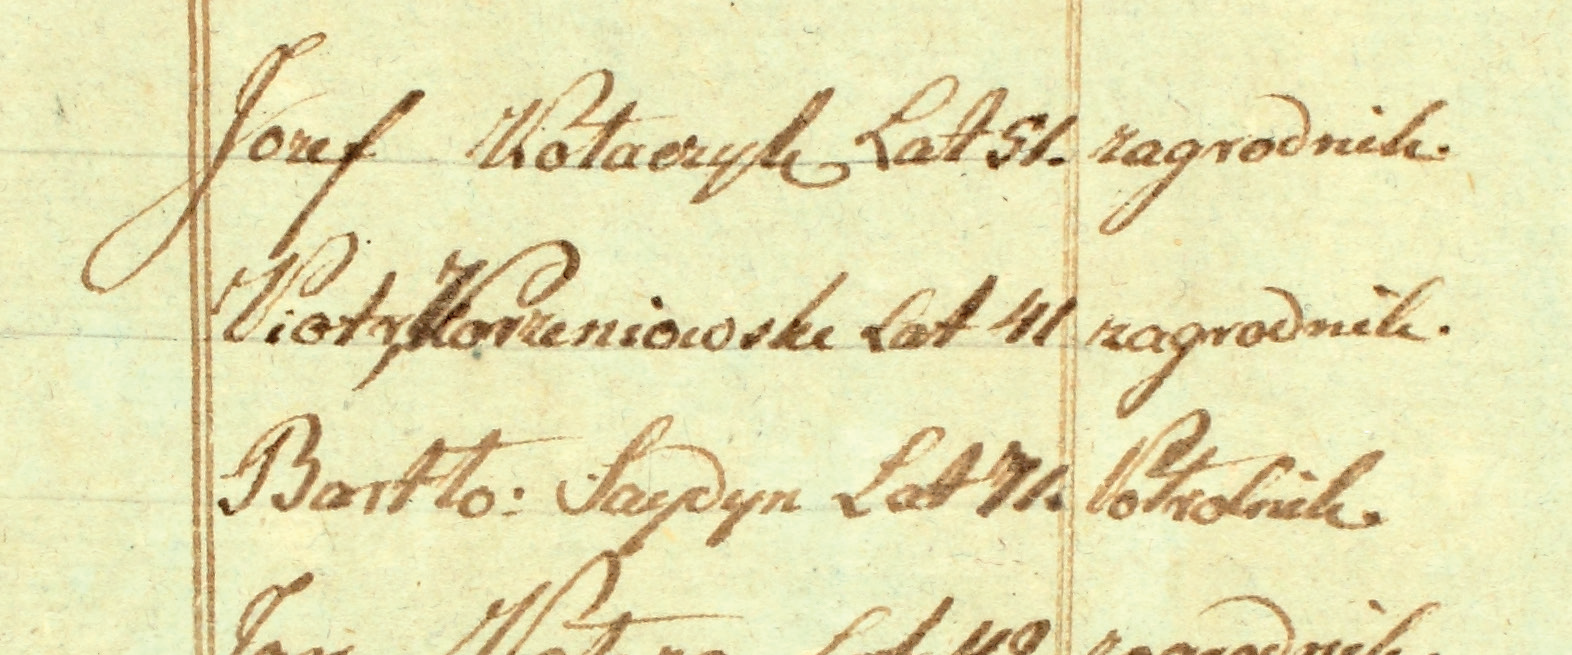 Jozef Kołaczyk Lat 51. zagrodnik.
Piotr Korzeniowski Lat 41 zagrodnik.
Bartło: Saydyn Lat 71. Połrolnik.
Jan Lat 48 zagrodnik.